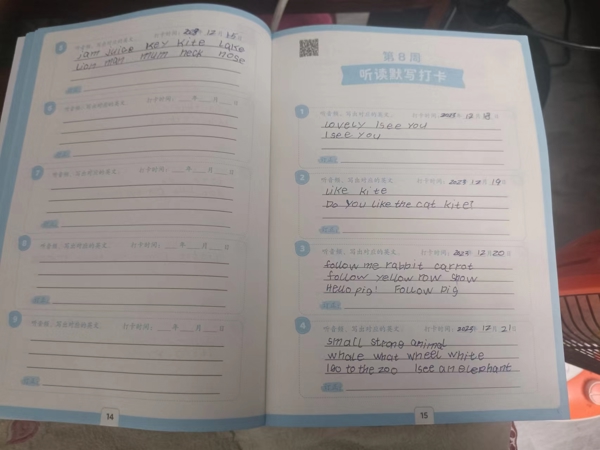 5 听音频，写出对应的英文。 打卡时间：2023年 12月 15日
Jam Juise Key Kite Lake
Lion man mum neck nose
6 听音频，写出对应的英文。 打卡时间：___年___月___日
7 听音频，写出对应的英文。 打卡时间：___年___月___日
8 听音频，写出对应的英文。 打卡时间：___年___月___日
9 听音频，写出对应的英文。 打卡时间：___年___月___日
14
第 8 周
听读默写打卡
1 听音频，写出对应的英文。 打卡时间：2023年 12月 18日
Lovely Isee you
I see you
2 听音频，写出对应的英文。 打卡时间：2023年 12月 19日
Like kite
Do you like the cat kite?
3 听音频，写出对应的英文。 打卡时间：2023年 12月 20日
follow me rabbit carrot
follow yellow row show
Hello pig! Follow pig
4 听音频，写出对应的英文。 打卡时间：2023年 12月 21日
small strong animal
whale what wheel white
I Go to the zoo Isee an elephant
15